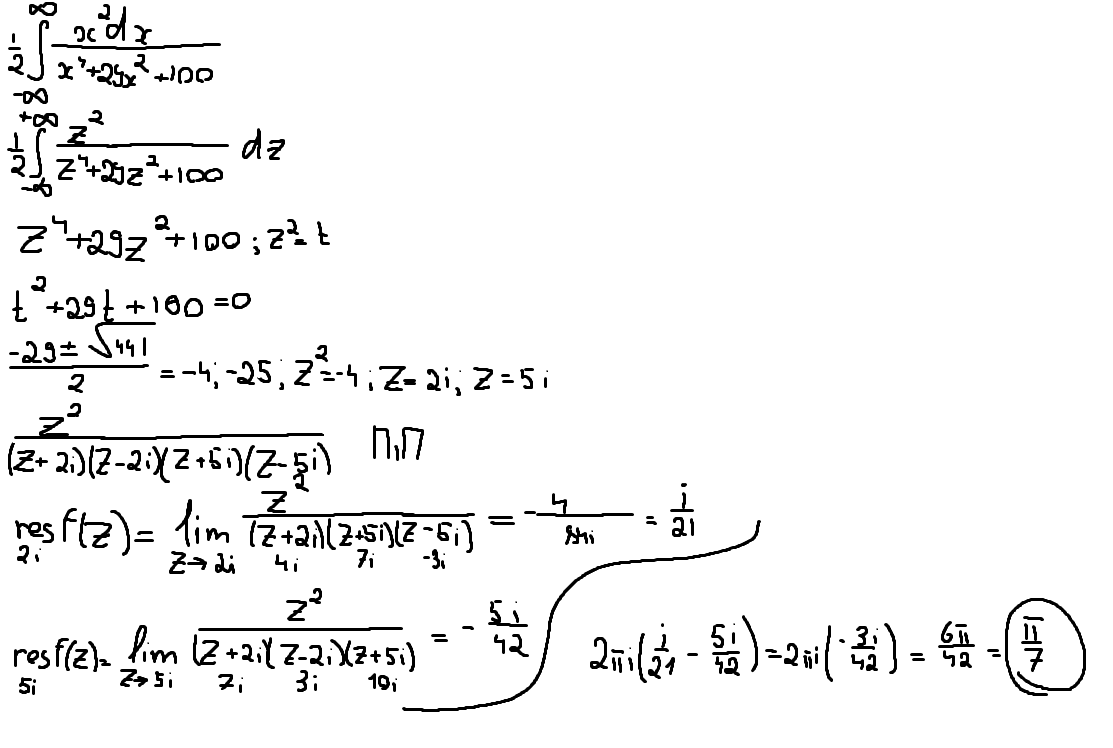 1/2 ∫_{-∞}^{∞} x²dx / (x⁴+29x²+100)
1/2 ∫_{-∞}^{+∞} z² / (z⁴+29z²+100) dz
z⁴+29z²+100 ; z²=t
t²+29t+100=0
(-29±√441)/2 = -4; -25; z²=-4; z=2i; z=5i
z² / ((z+2i)(z-2i)(z+5i)(z-5i)) П.П
res_{2i} f(z) = lim_{z→2i} z² / ((z+2i)(z+5i)(z-5i)) = -4/84i = i/21
4i 7i -3i
res_{5i} f(z) = lim_{z→5i} z² / ((z+2i)(z-2i)(z+5i)) = -5i/42
7i 3i 10i
2πi(i/21 - 5i/42) = 2πi(-3i/42) = 6π/42 = π/7